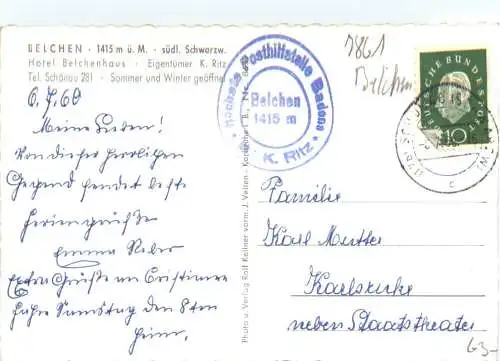 BELCHEN · 1415 m ü. M. · südl. Schwarzw.
Hotel Belchenhaus · Eigentümer K. Ritz
Tel. Schönau 281 · Sommer und Winter geöffnet
6.7.60
Meine Lieben!
Von dieser herrlichen
Gegend sendet beste
Feriengrüße
Emma
Extra Grüße an
Samstag den 8ten
heim.
Höchste Posthilfsstelle Badens
Belchen
1415 m
K. Ritz
7861
Belchen
DEUTSCHE BUNDESPOST
10
Photo u. Verlag Rolf Kellner vorm. J. Velten - Karlsruhe
Familie
Karl
Karlsruhe
neben Staatstheater
63-